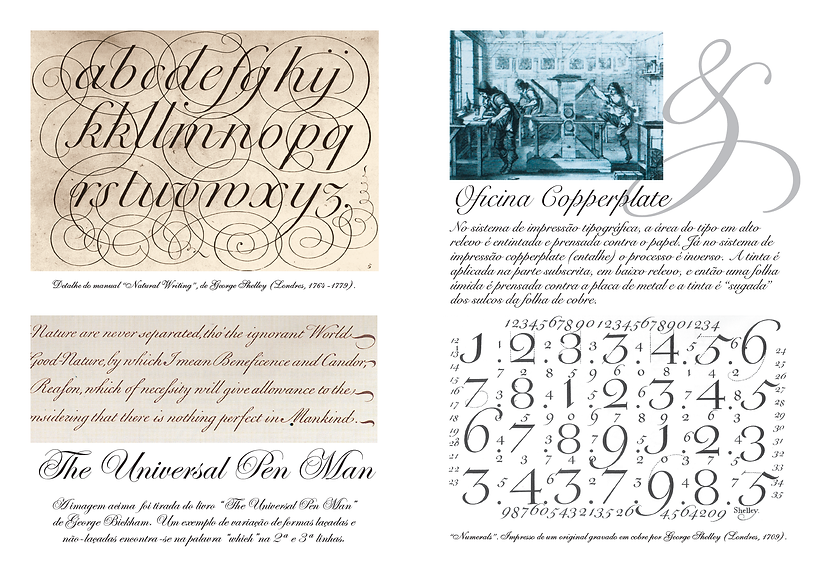 abcdefghij
kkllmnopq
rstuvwxyz.
5
Detalhe do manual "Natural Writing", de George Shelley (Londres, 1764-1779).
Nature are never separated, tho' the ignorant World
Good-Nature, by which I mean Beneficence and Candor,
Reason, which of necessity will give allowance to the
nsidering that there is nothing perfect in Mankind.
The Universal Pen Man
A imagem acima foi tirada do livro "The Universal Pen Man"
de George Bickham. Um exemplo de variação de formas laçadas e
não-laçadas encontra-se na palavra "which" na 2ª e 3ª linhas.
&
Oficina Copperplate
No sistema de impressão tipográfica, a área do tipo em alto
relevo é entintada e prensada contra o papel. Já no sistema de
impressão copperplate (entalhe) o processo é inverso. A tinta é
aplicada na parte subscrita, em baixo relevo, e então uma folha
úmida é prensada contra a placa de metal e a tinta é "sugada"
dos sulcos da folha de cobre.
123456789012345678901234
1.2.3.3.4.5.6
7.8.1.2.3.4.5
6.7.8.9.1.2.3
3.4.3.7.9.8.3
Shelley.
"Numerals". Impresso de um original gravado em cobre por George Shelley (Londres, 1709).